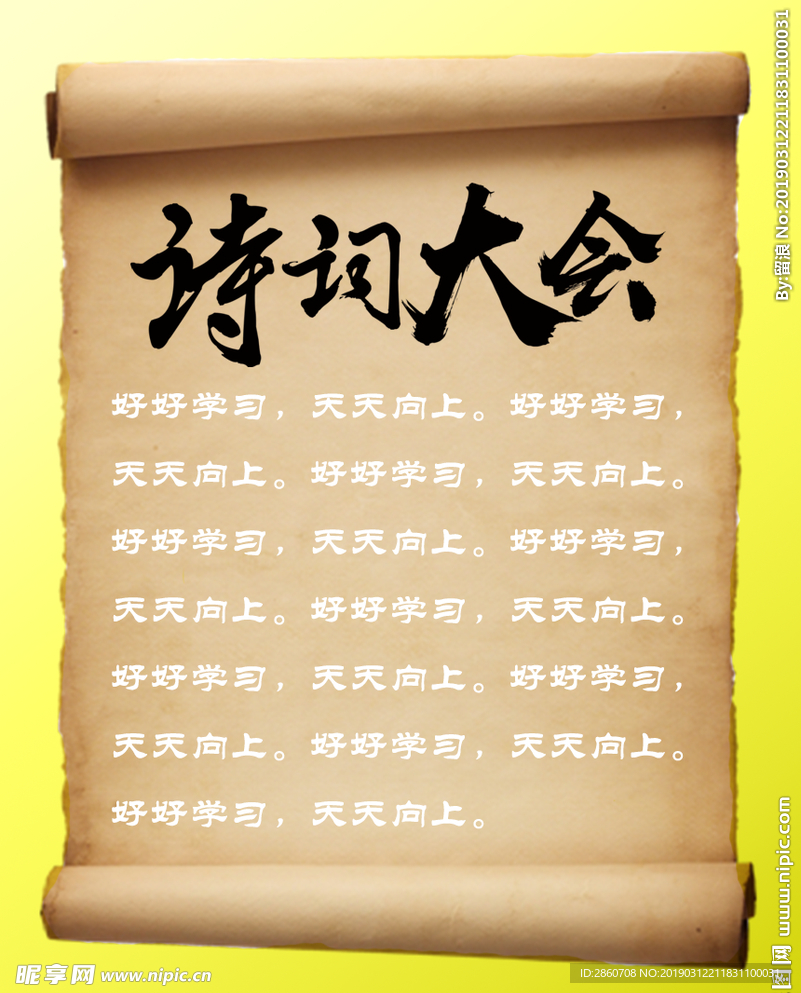 诗词大会
好好学习，天天向上。好好学习，
天天向上。好好学习，天天向上。
好好学习，天天向上。好好学习，
天天向上。好好学习，天天向上。
好好学习，天天向上。好好学习，
天天向上。好好学习，天天向上。
好好学习，天天向上。
By:留浪 No:20190312211831100031
www.nipic.com
昵享网 www.nipic.cn
ID:2860708 NO:20190312211831100031